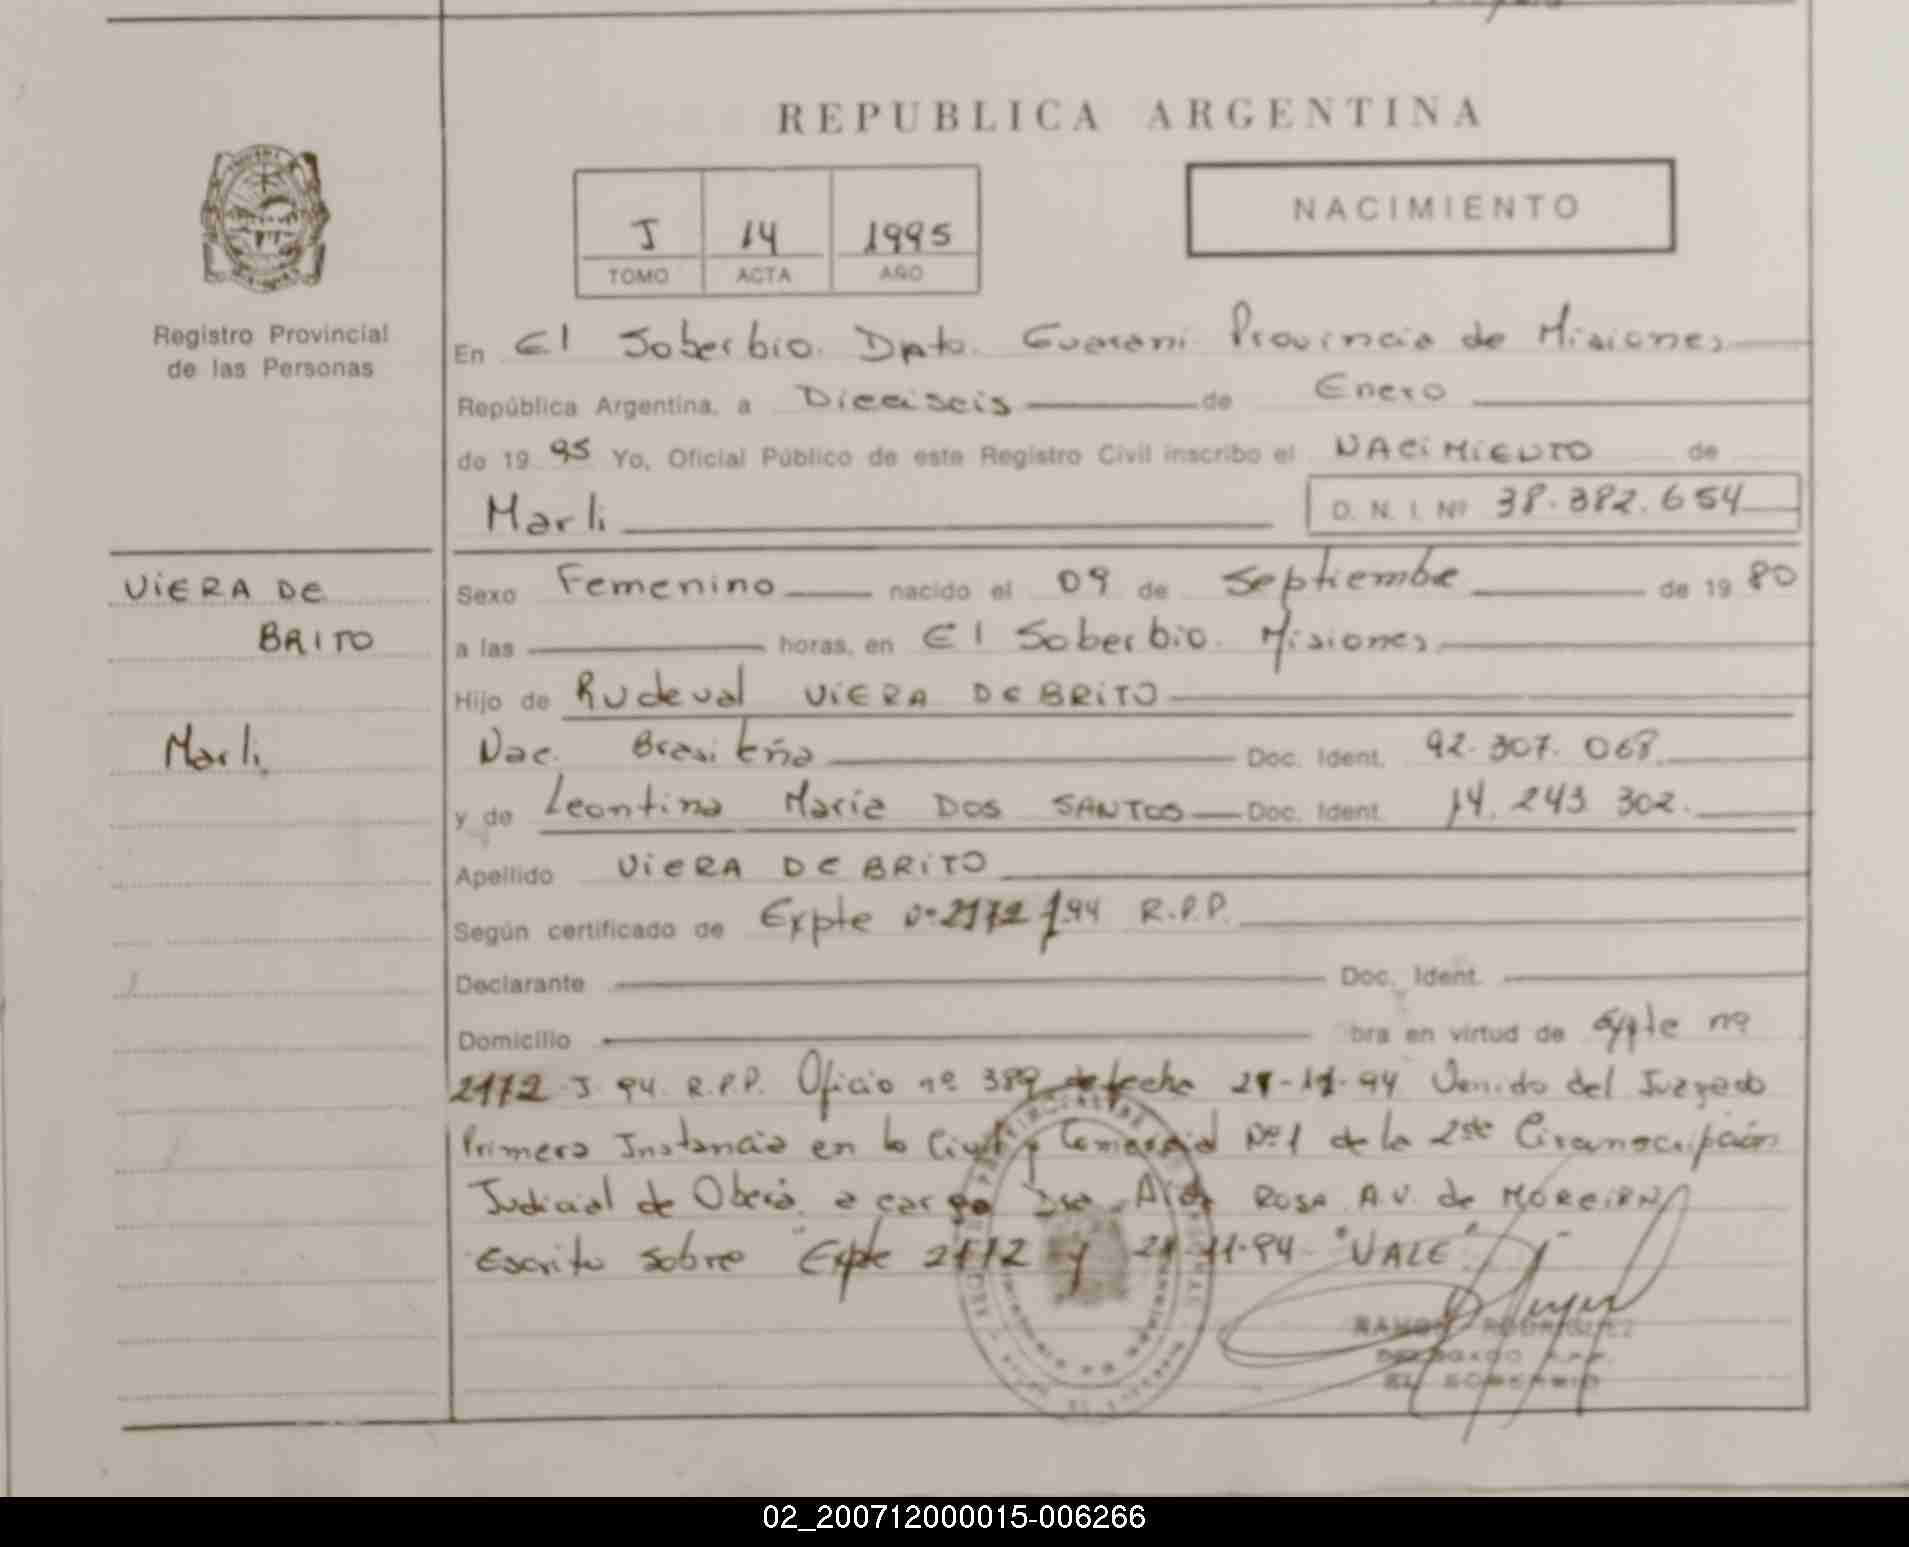 REPUBLICA ARGENTINA
NACIMIENTO
J 14 1995
TOMO ACTA AÑO
Registro Provincial
de las Personas
En El Soberbio. Dpto. Guarani Provincia de Misiones
República Argentina, a Dieciseis de Enero
de 19 95 Yo, Oficial Público de este Registro Civil inscribo el NACIMIENTO de
Marli D. N. I. Nº 38.382.654
VIERA DE
BRITO
Marli
Sexo Femenino nacido el 09 de Septiembre de 19 80
a las horas, en El Soberbio. Misiones
Hijo de Rudeval VIERA DE BRITO
Nac. Brasileña Doc. Ident. 92.307.068.
y de Leontina Maria DOS SANTOS Doc. Ident. 14.243.302.
Apellido VIERA DE BRITO
Según certificado de Expte Nº 2172 J.94 R.P.P.
Declarante Doc. Ident.
Domicilio bra en virtud de Expte nº
2172 J. 94. R.P.P. Oficio nº 389 de fecha 21-11-94 Venido del Juzgado
Primera Instancia en lo Civil y Comercial Nº1 de la 2da Circunscripción
Judicial de Oberá, a cargo Dra. Aida ROSA A.V. de MOREIRA
Escrito sobre "Expte 2172 y 21-11-94 "VALE"
RAMON RODRIGUEZ
DELEGADO R.P.P.
EL SOBERBIO
02_200712000015-006266